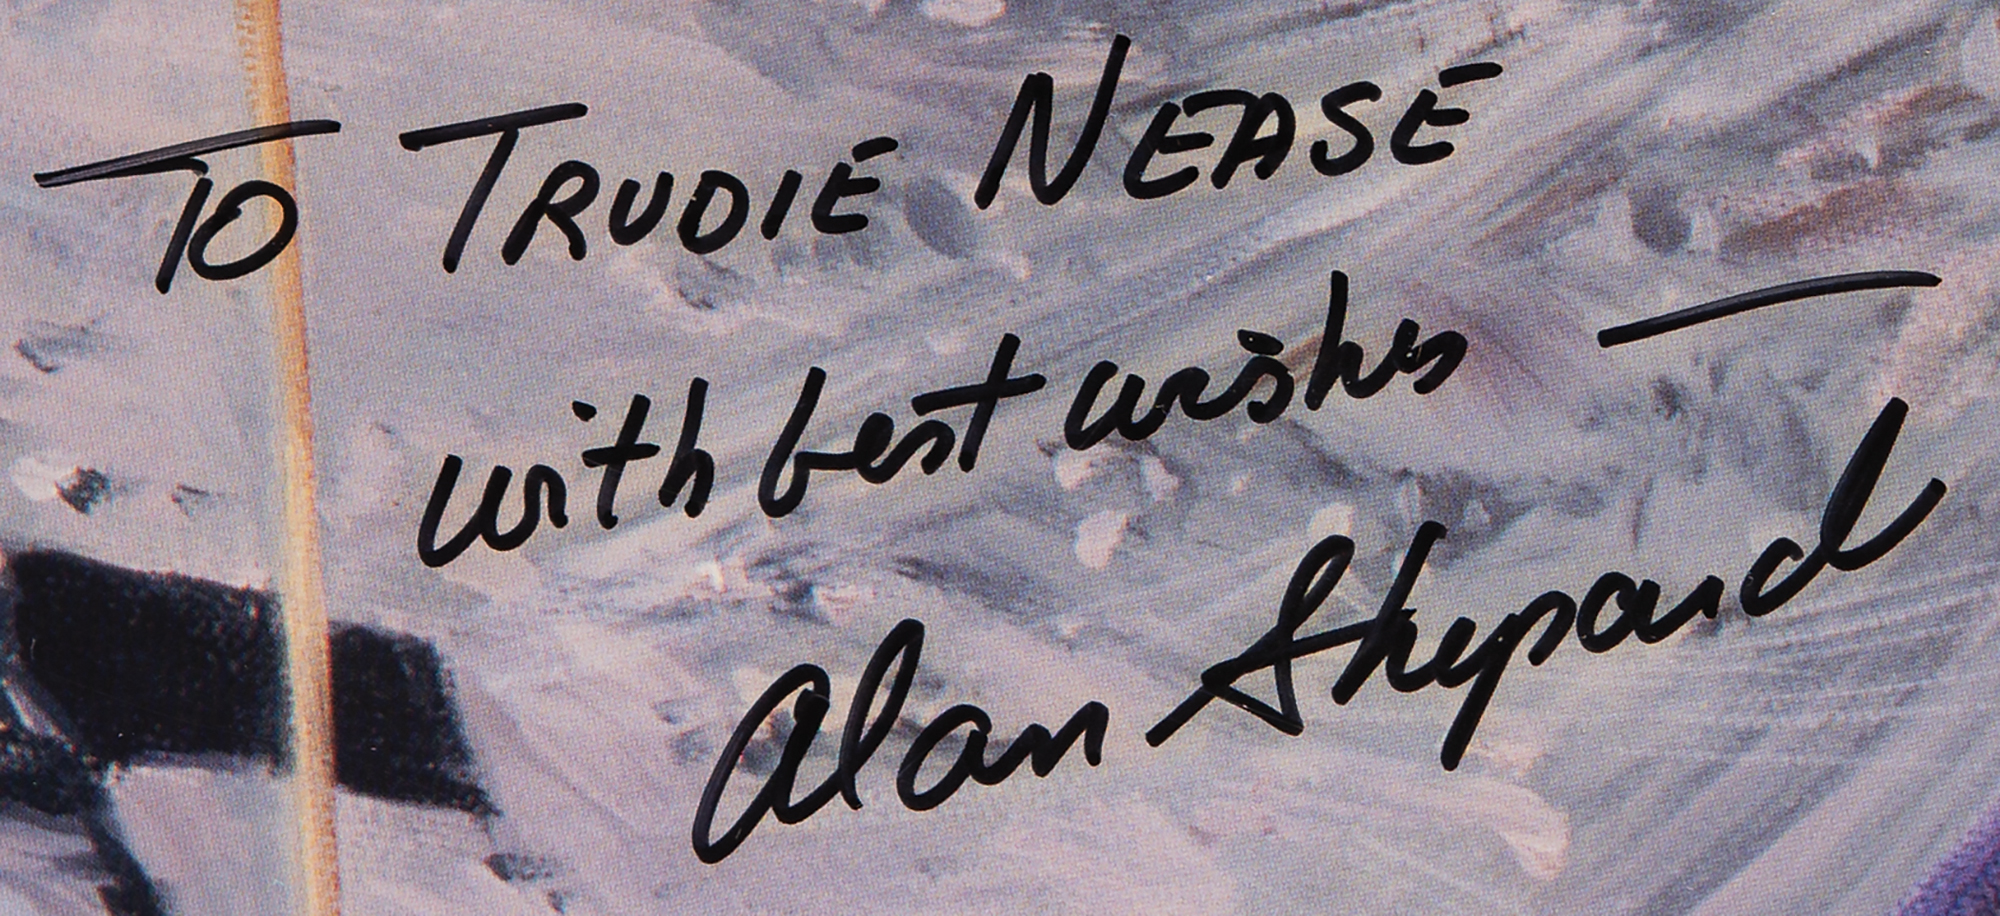 To TRUDIE NEASE
with best wishes —
Alan Shepard